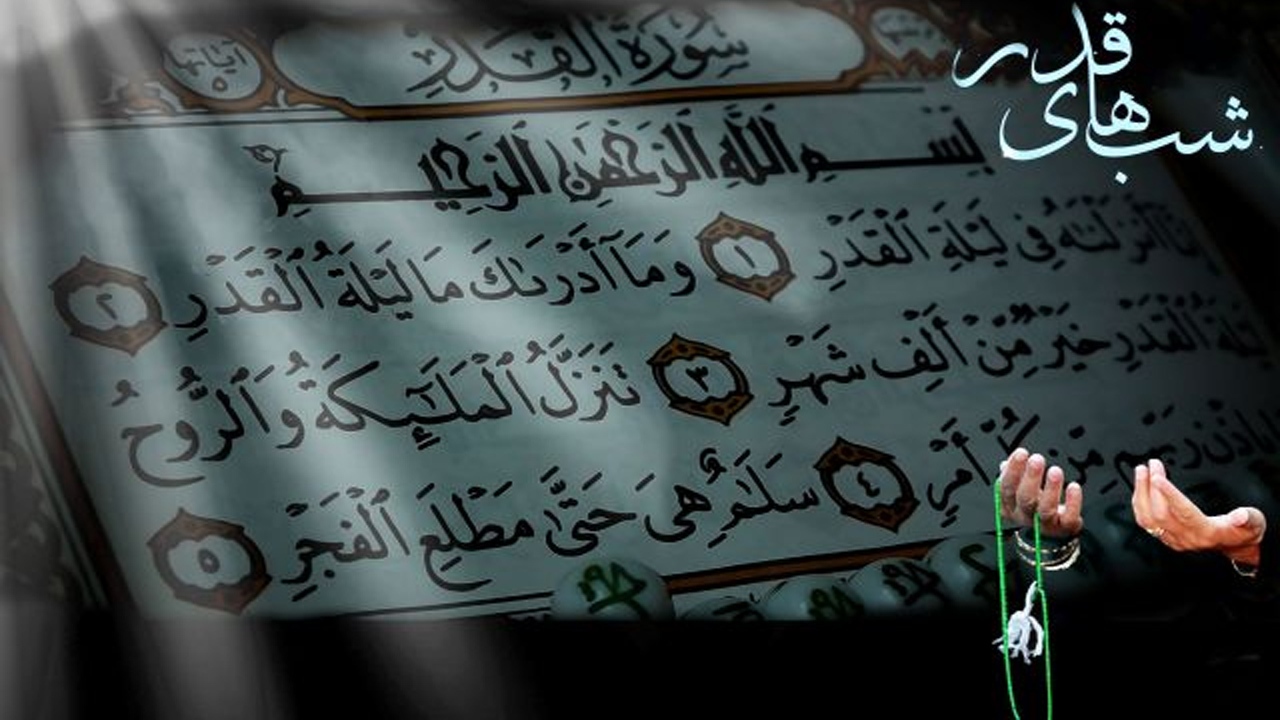 قدر
شب‌های
سورة القدر
آیاتها
٥
بِسْمِ اللَّهِ الرَّحْمَٰنِ الرَّحِيمِ
أَنزَلْنَٰهُ فِى لَيْلَةِ ٱلْقَدْرِ ١ وَمَآ أَدْرَىٰكَ مَا لَيْلَةُ ٱلْقَدْرِ ٢
لَيْلَةُ ٱلْقَدْرِ خَيْرٌ مِّنْ أَلْفِ شَهْرٍ ٣ تَنَزَّلُ ٱلْمَلَٰٓئِكَةُ وَٱلرُّوحُ
بِإِذْنِ رَبِّهِم مِّن كُلِّ أَمْرٍ ٤ سَلَٰمٌ هِىَ حَتَّىٰ مَطْلَعِ ٱلْفَجْرِ ٥